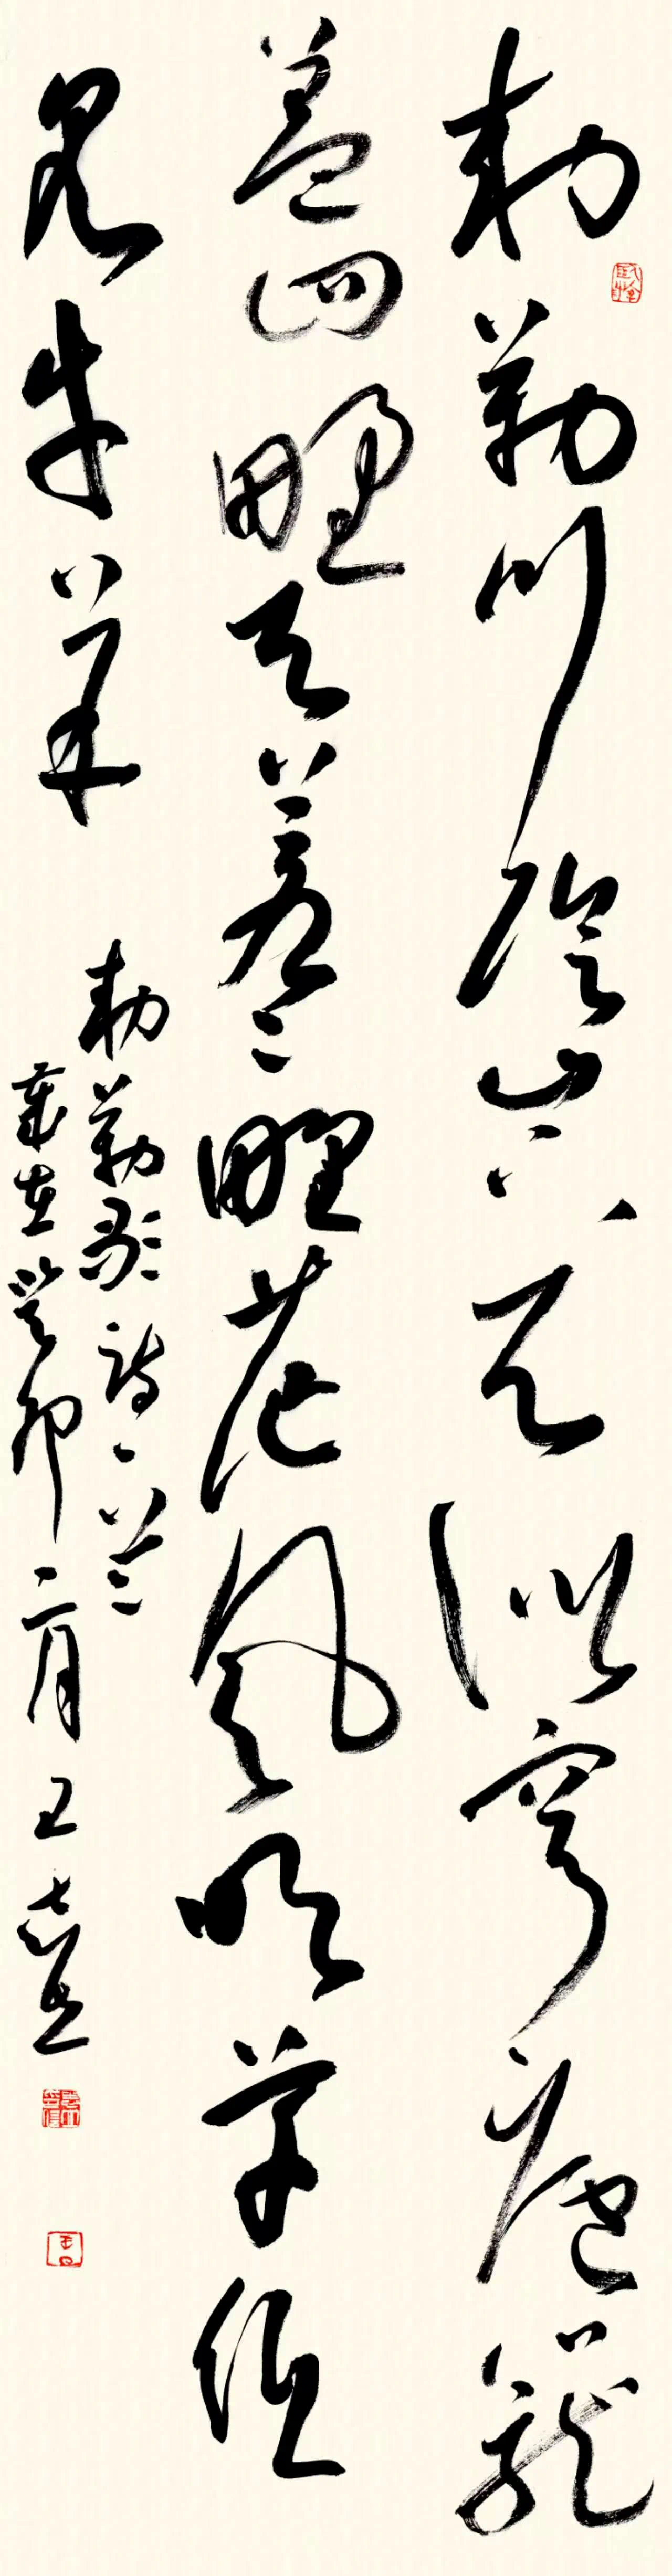 勅勒川陰山下天似穹廬籠
蓋四野天蒼〻野茫風吹草低
見牛羊
勅勒歌詩一首
歲在癸卯二月王